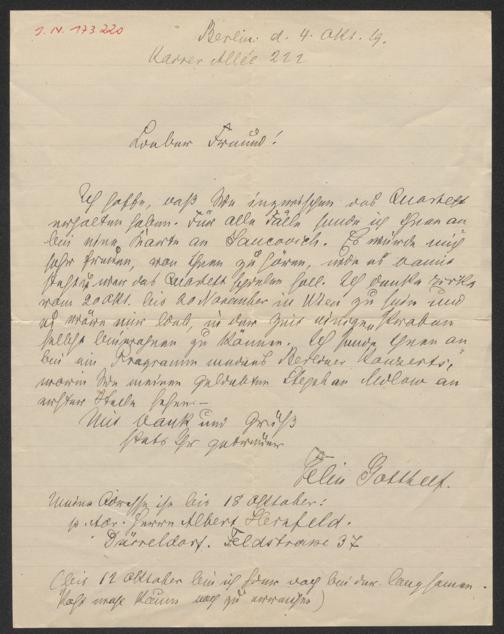 J. N. 173.220
Berlin d. 4. Okt. 19.
Allée 211
Lieber Freund!
Ich hoffe, daß Sie inzwischen das Quartett
erhalten haben. Für alle Fälle sende ich Ihnen an
bei eine Karte an Es würde mich
sehr freuen, von Ihnen zu hören, wie es damit
steht u. wer das Quartett spielen soll. Ich denke
vom 20 Okt. bis 20 November in Wien zu sein und
es wäre mir lieb, in der Zeit einigen Proben
selbst beiwohnen zu können. Ich sende Ihnen an
bei ein Programm meines Berliner Konzerts,
worin Sie meinen geliebten Stephan an
erster Stelle sehen. –
Mit Dank und Gruß
stets Ihr getreuer
Felix Gotthelf.
Meine Adresse ist bis 18 Oktober:
p. Adr. Herrn Albert Herzfeld.
Düsseldorf. Feldstrasse 37
(bis 12 Oktober bin ich hier doch bei der langsamen
Post wohl kaum noch zu erreichen)